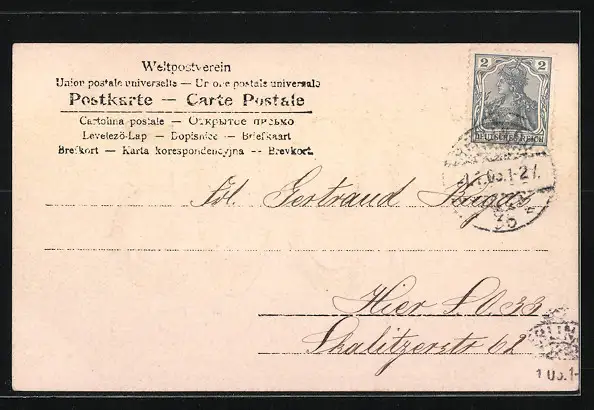 Weltpostverein
Union postale universelle — Un one postale universale
Postkarte — Carte Postale
Cartolina postale — Открытое письмо
Levelező-Lap — Dopisnice — Briefkaart
Brefkort — Karta korespondencyjna -- Brevkort.
2 2
DEUTSCHES REICH
1-2N.
36
Frl. Gertraud
Hier S.O 33
Skalitzerstr 62